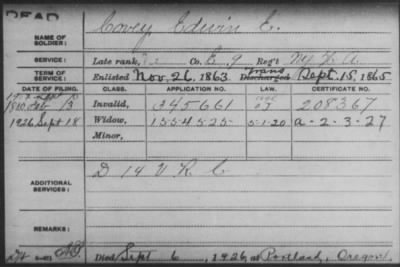 DEAD
NAME OF SOLDIER: Covey, Edwin E.
SERVICE: Late rank, Co. E, 9 Reg't N.Y. H. A.
TERM OF SERVICE: Enlisted Nov. 26, 1863 Trans Discharged Sept. 15, 1865
DATE OF FILING. CLASS. APPLICATION NO. LAW. CERTIFICATE NO.
1880 Feb 13 Invalid, 345661 208367
1926 Sept 18 Widow, 1554525 5-1-20 a-2-3-27
Minor,
ADDITIONAL SERVICES: D 14 V R C
REMARKS:
Died Sept 6, 1926 at Portland, Oregon.